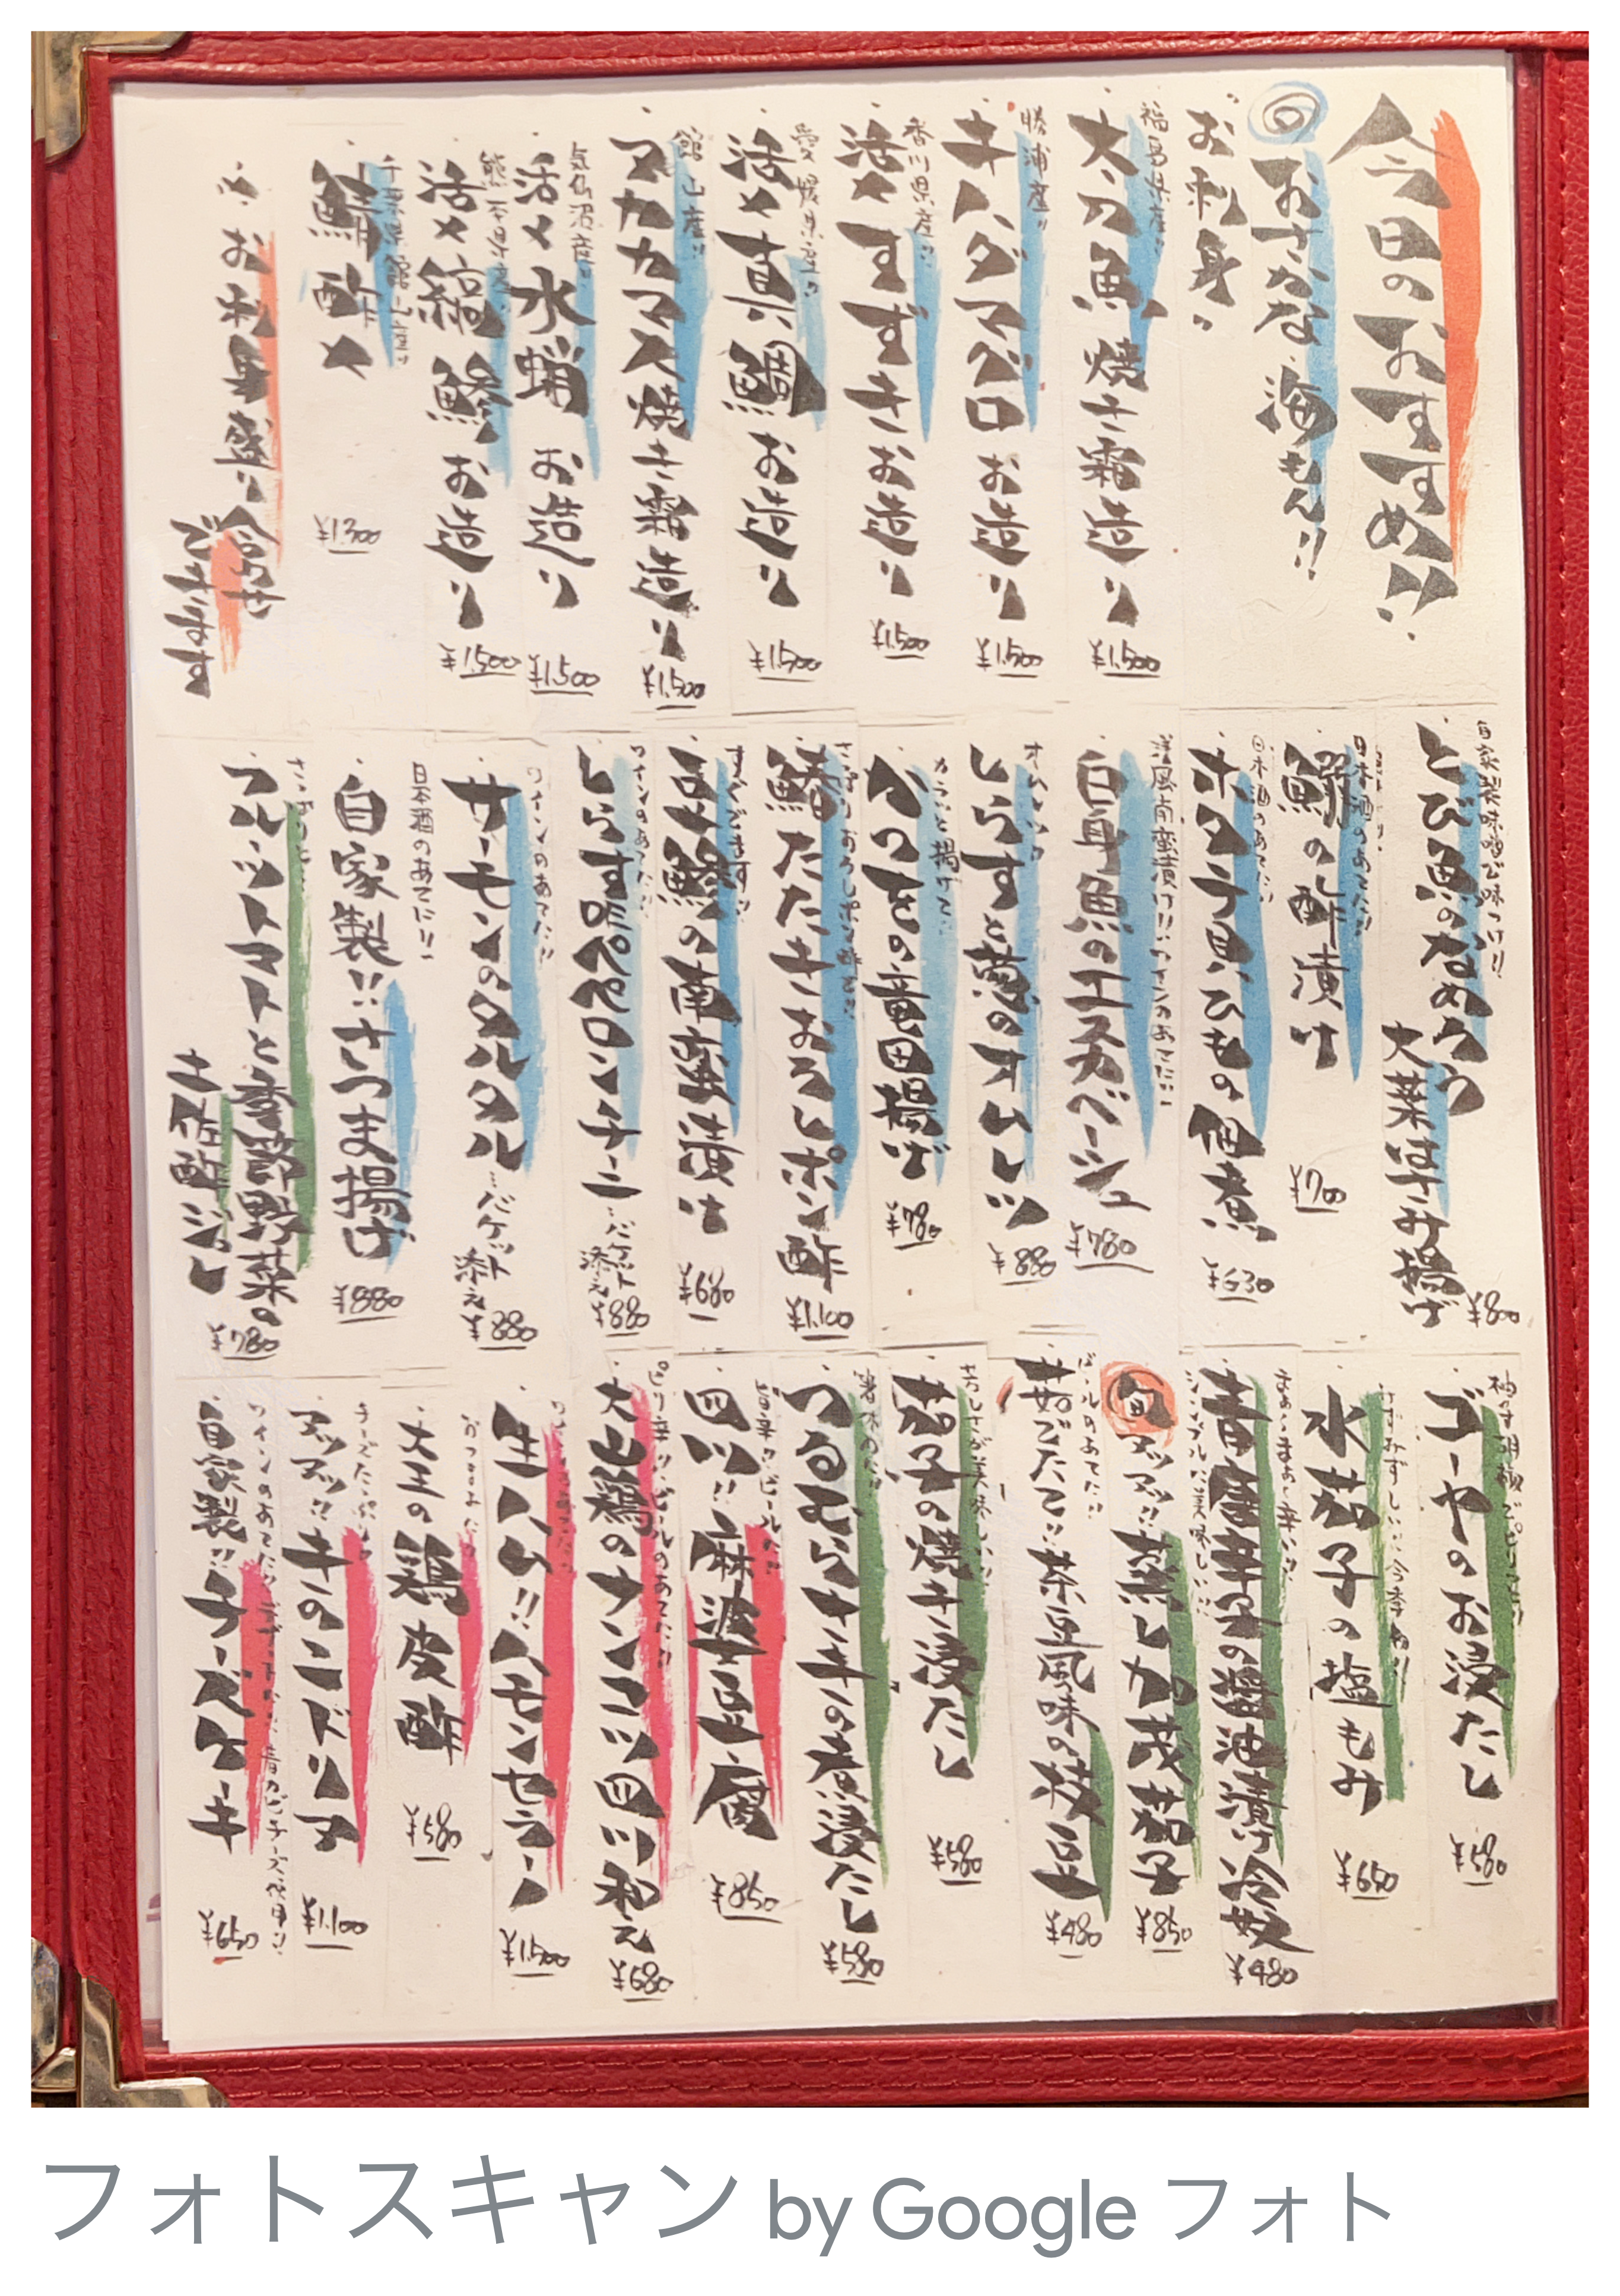 今日のおすすめ!!
おさかな 海もん!!
お刺身
福島県産!!
太刀魚 焼き霜造り
¥1,500
勝浦産!!
キハダマグロ お造り
¥1,500
香川県産!!
活〆すずき お造り
¥1,500
愛媛県産!!
活〆真鯛 お造り
¥1,500
館山産!!
アカカマス焼き霜造り
¥1,500
気仙沼産!!
活〆水蛸 お造り
¥1,500
熊本県産!!
活〆縞鯵 お造り
¥1,500
千葉県館山産!!
鯖酢〆
¥1,300
お刺身盛り合わせ
できます
自家製味噌で味つけ!!
とび魚のなめろう
大葉はさみ揚げ
¥800
日本酒のあてに!!
の酢漬け
¥700
日本酒のあてに!!
ホタテ貝ひもの佃煮
¥630
洋風南蛮漬け!! ワインのあてに!!
白身魚のエスカベーシュ
¥780
しらすと葱のオムレツ
¥880
カラッと揚げて
の竜田揚げ
¥780
さっぱりおろしポン酢で!!
たたきおろしポン酢
¥1,100
豆アジの南蛮漬け
¥680
ワインのあてに!!
しらすペペロンチーニ
バケット添え
¥880
ワインのあてに!!
サーモンのタルタル
バケット添え
¥880
日本酒のあてに!!
自家製!! さつま揚げ
¥880
さっぱりと
フルーツトマトと季節野菜の
土佐酢ジュレ
¥780
柚子胡椒でピリッと!!
ゴーヤのお浸たし
¥580
みずみずしい!! 今季初!!
水茄子の塩もみ
¥650
シンプルに美味しい!!
青唐辛子の醤油漬け冷奴
¥480
旬
アツアツ!! 蒸し加茂茄子
¥850
ビールのあてに!!
茹でたて!! 茶豆風味の枝豆
¥480
茄子の焼き浸たし
¥580
箸休めに!!
つるむらさきの煮浸たし
¥580
旨辛!! ビールに!!
四川!! 麻婆豆腐
¥850
ピリ辛!! ビールのあてに!!
大山鶏のナンコツ四川和え
¥680
生ハム!! ハモンセラーノ
¥1,500
おつまみに!!
大王の鶏皮酢
¥580
チーズたっぷり
アツアツ!! キのこドリア
¥1,100
自家製!! チーズケーキ
¥650
フォトスキャン by Google フォト